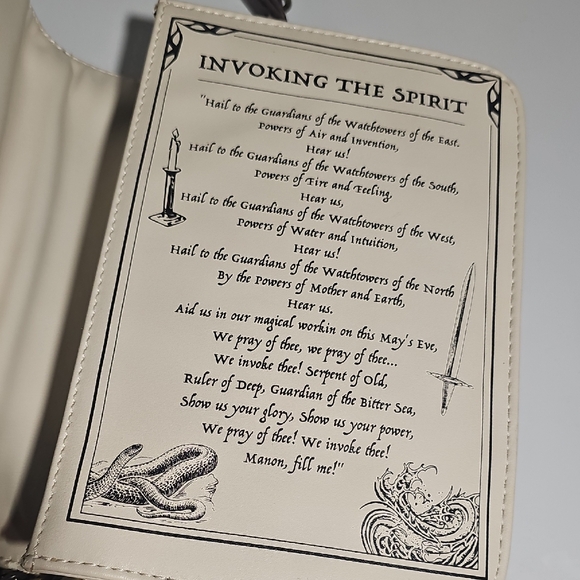 INVOKING THE SPIRIT
"Hail to the Guardians of the Watchtowers of the East.
Powers of Air and Invention,
Hear us!
Hail to the Guardians of the Watchtowers of the South,
Powers of Fire and Feeling,
Hear us,
Hail to the Guardians of the Watchtowers of the West,
Powers of Water and Intuition,
Hear us!
Hail to the Guardians of the Watchtowers of the North
By the Powers of Mother and Earth,
Hear us.
Aid us in our magical workin on this May's Eve,
We pray of thee, we pray of thee...
We invoke thee! Serpent of Old,
Ruler of Deep, Guardian of the Bitter Sea,
Show us your glory, Show us your power,
We pray of thee! We invoke thee!
Manon, fill me!"